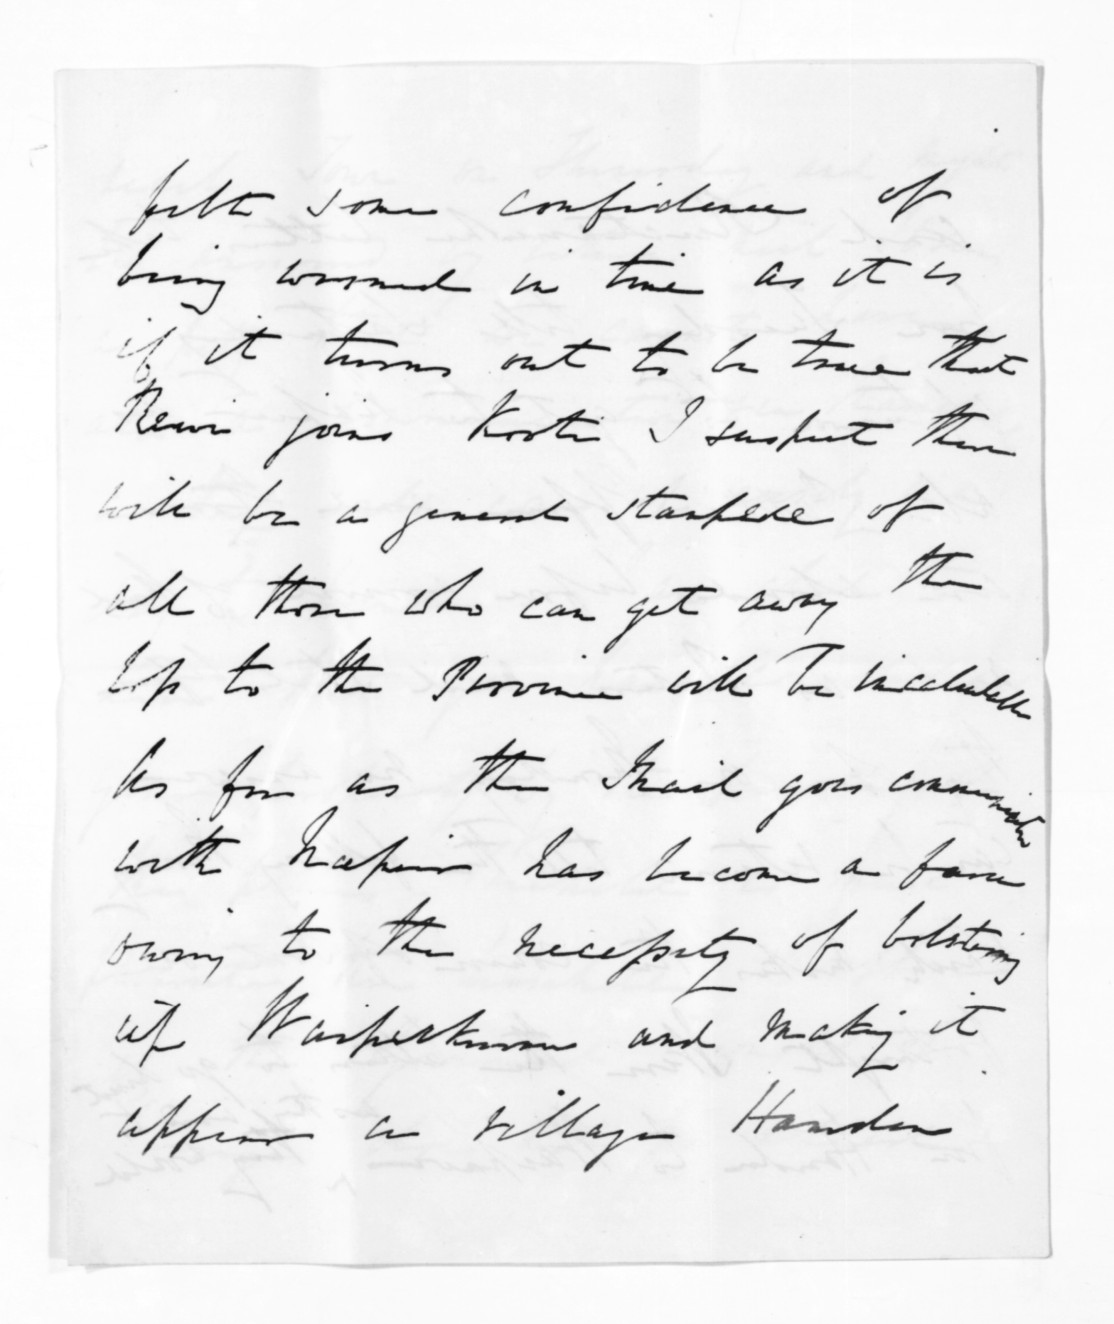 felt some confidence of
being warned in time as it is
if it turns out to be true that
Rewi joins Kooti I suspect there
will be a general stampede of
all those who can get away the
loss to the Province will be incalculable
As far as the Mail goes communication
with Napier has become a farce
owing to the necessity of bolstering
up Waipukurau and making it
appear a village Hamden